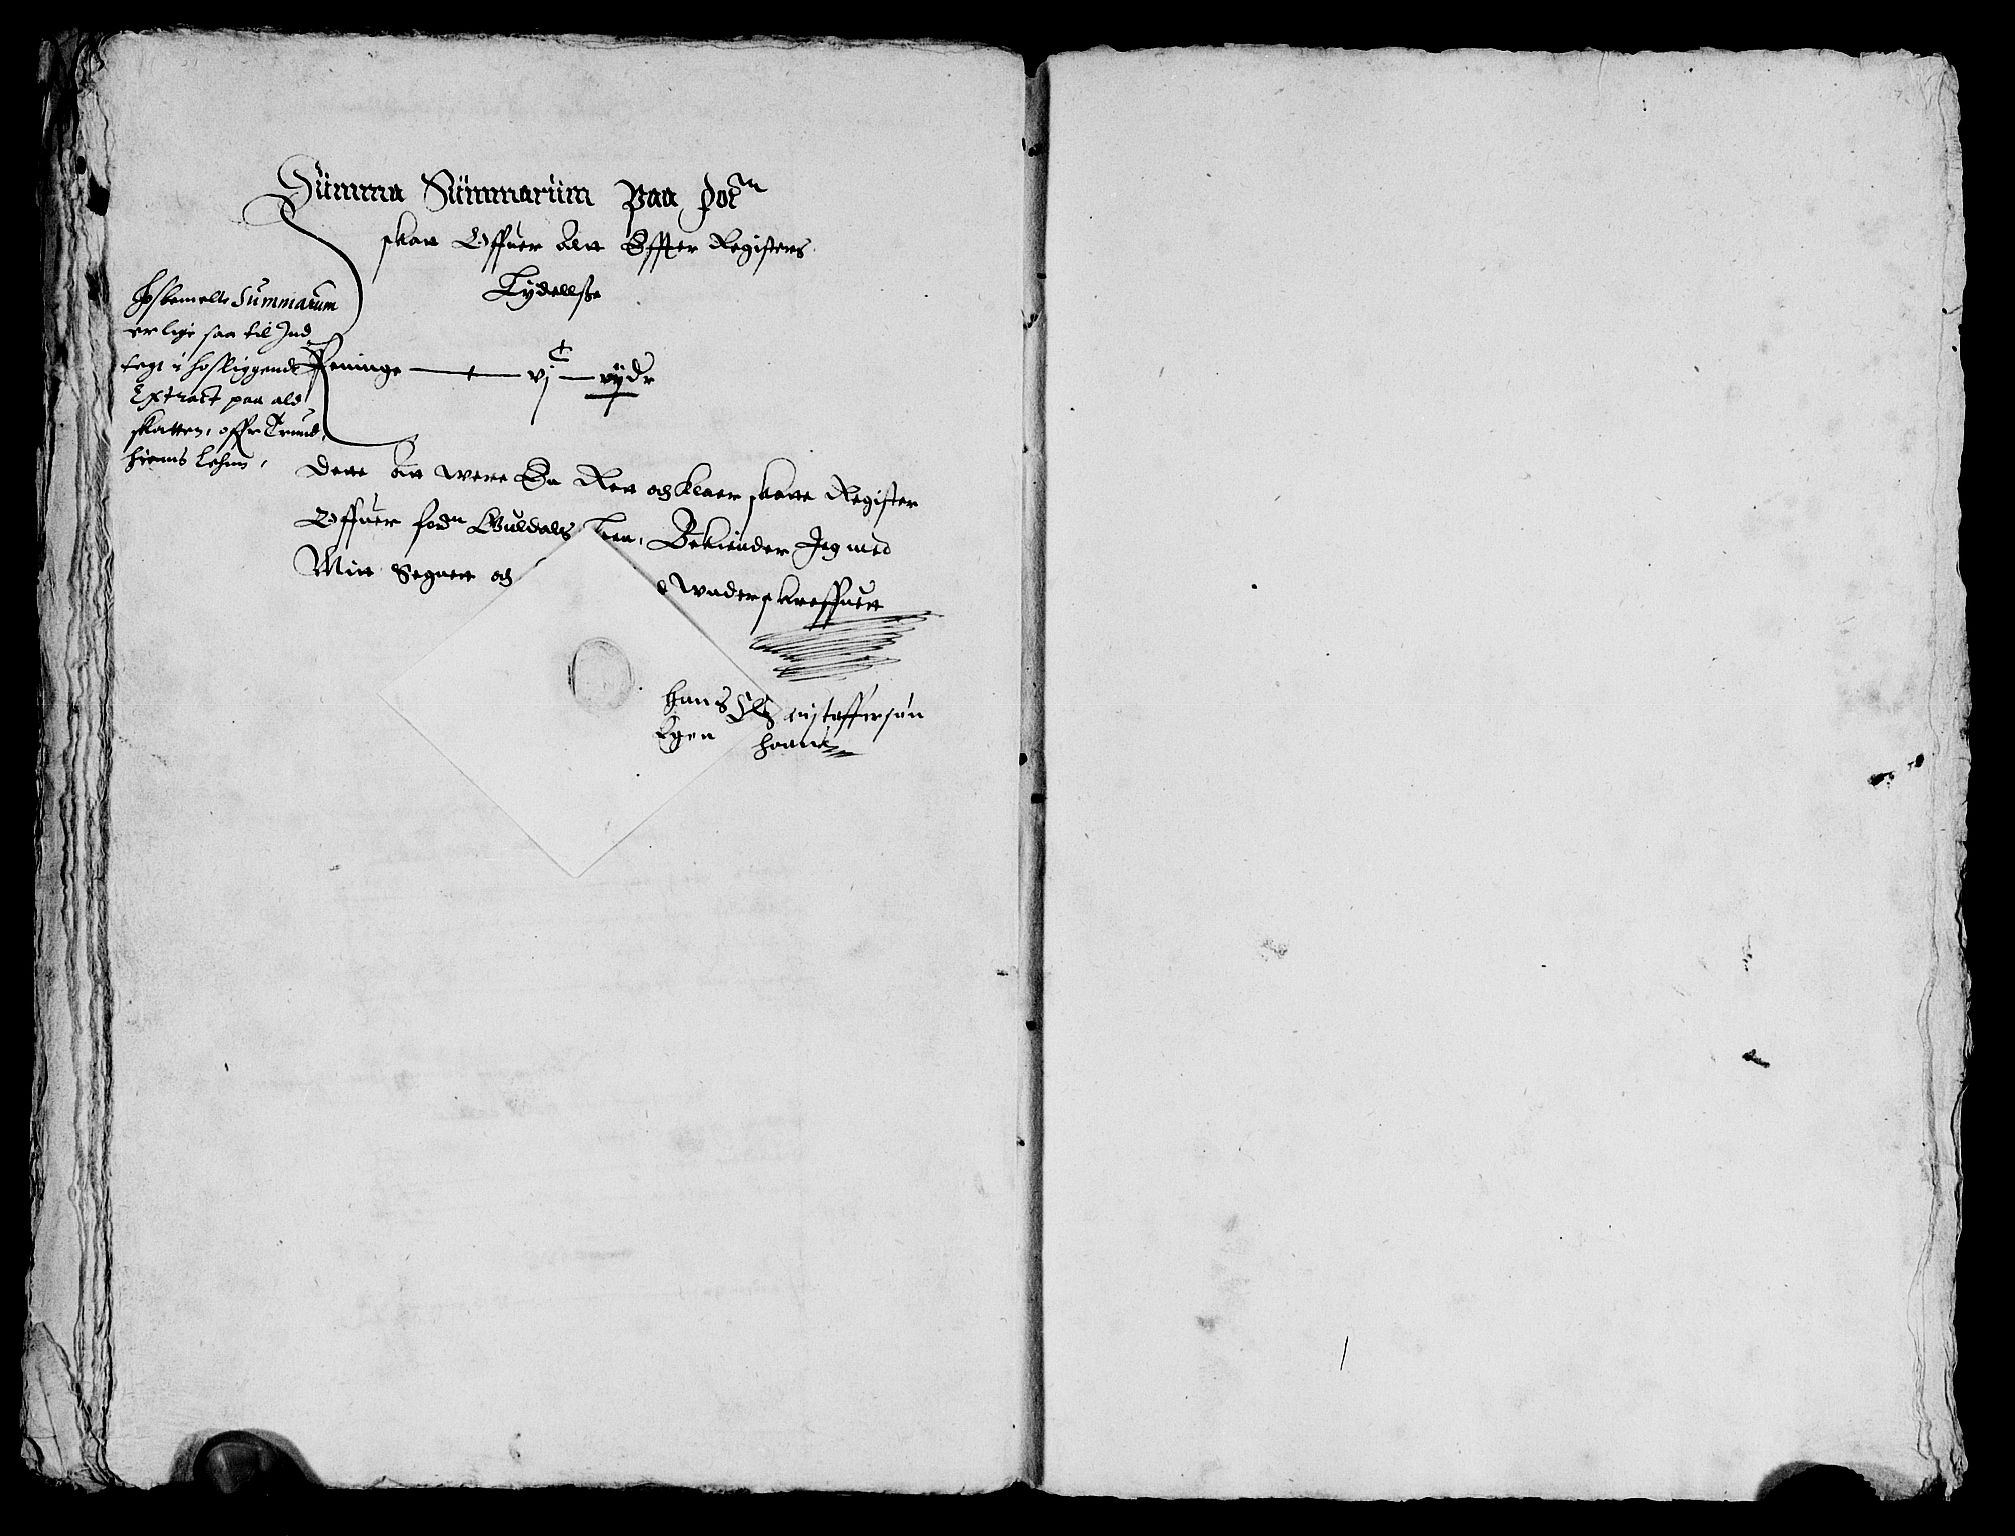 Summa Summarum Paa för:ne
skatt Offuer altt Effter Registers
Lydellsse
Hosbemelte Summarum
er lige saa til Ind
tegt i hossliggende
Extract paa ald
skatten, offr Trund
hiems Lehen,
Peninge — vj C — vij dr
Dette att were En Rett och Klaer skatte Register
Offuer ford:ne Guldals Leen, Bekiender Jeg med
Mitt Segnett och
Wnderskreffuett
Hans Christoffersøn
Egen haand